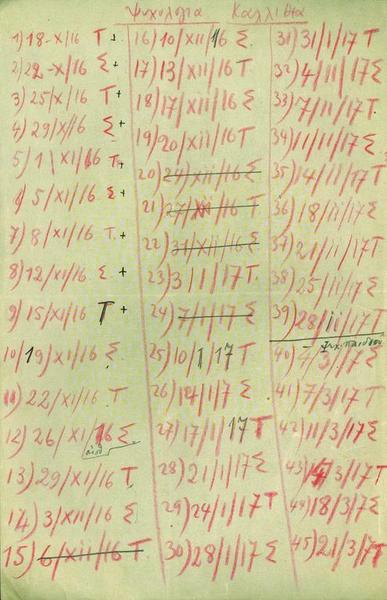 Ψυχολογία Καλλιθέα
1) 18-X/16 T +
2) 22-X/16 Σ +
3) 25/X/16 T +
4) 29/X/16 Σ +
5) 1/XI/16 T +
6) 5/XI/16 Σ +
7) 8/XI/16 T. +
8) 12/XI/16 Σ +
9) 15/XI/16 T +
10) 19/XI/16 Σ
11) 22/XI/16 T
12) 26/XI/16 Σ
13) 29/XI/16 T
14) 3/XII/16 Σ
15) 6/XII/16 T
16) 10/XII/16 Σ
17) 13/XII/16 T
18) 17/XII/16 Σ
19) 20/XII/16 T
20) 24/XII/16 Σ
21) 27/XII/16 T
22) 31/XII/16 Σ
23) 3/1/17 T.
24) 7/1/17 Σ
25) 10/1/17 T
26) 14/1/7 Σ
27) 17/1/17 T
28) 21/1/17 Σ
29) 24/1/17 T
30) 28/1/17 Σ
31) 31/1/17 T
32) 4/11/17 Σ
33) 7/11/17 T
34) 11/11/17 Σ
35) 14/11/17 T
36) 18/11/17 Σ
37) 21/11/17 T
38) 25/11/17 Σ
39) 28/11/17 T
40) 4/3/17 Σ
41) 7/3/17 T
42) 11/3/17 Σ
43) 14/3/17 T
44) 18/3/7 Σ
45) 21/3/7 T